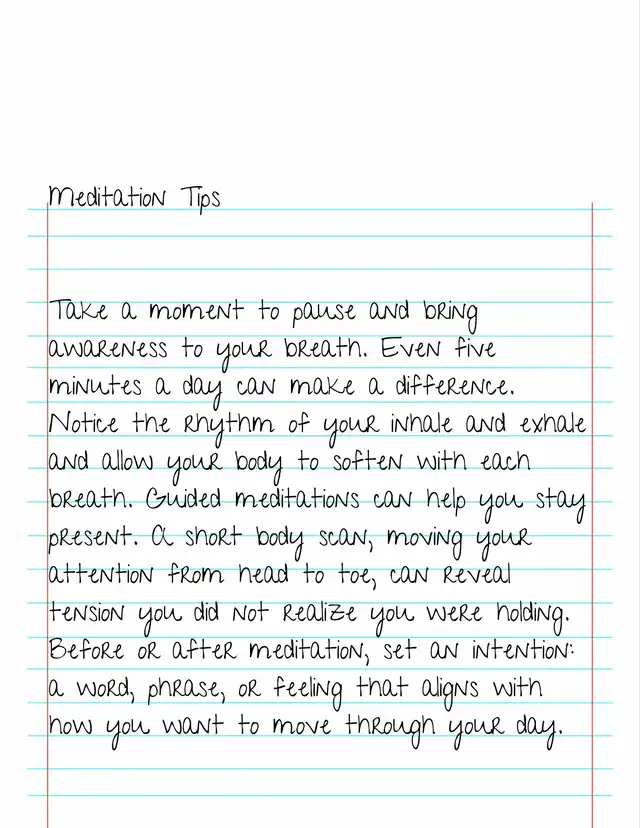 Meditation Tips
Take a moment to pause and bring
awareness to your breath. Even five
minutes a day can make a difference.
Notice the rhythm of your inhale and exhale
and allow your body to soften with each
breath. Guided meditations can help you stay
present. A short body scan, moving your
attention from head to toe, can reveal
tension you did not realize you were holding.
Before or after meditation, set an intention:
a word, phrase, or feeling that aligns with
how you want to move through your day.